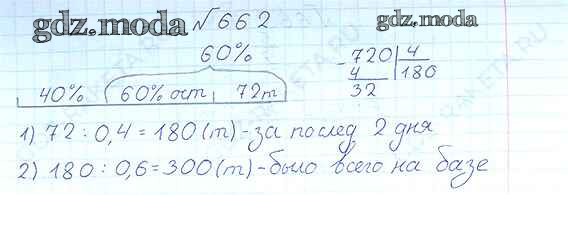 gdz.moda √662 gdz.moda
60%
40% 60% ост 72т
- 720 | 4
4 180
32
1) 72 : 0,4 = 180 (т) - за послед 2 дня
2) 180 : 0,6 = 300 (т) - было всего на базе